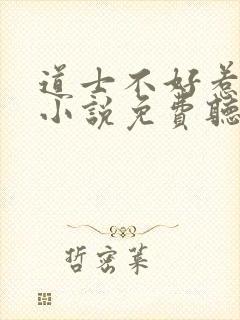 道士不好惹
小說免費聽
哲密萊